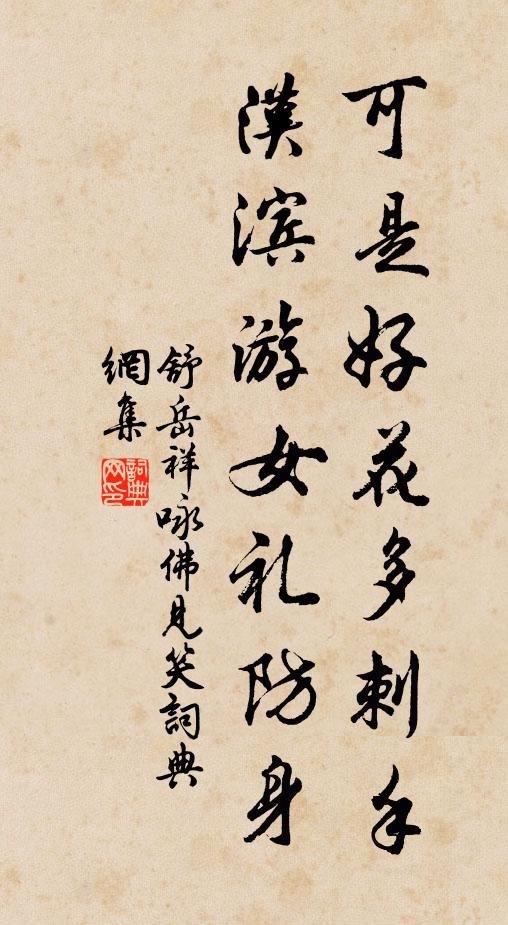 可是好花多刺手
漢滨游女礼防身
舒岳祥咏佛見笑詞典
網集
詞典
网印